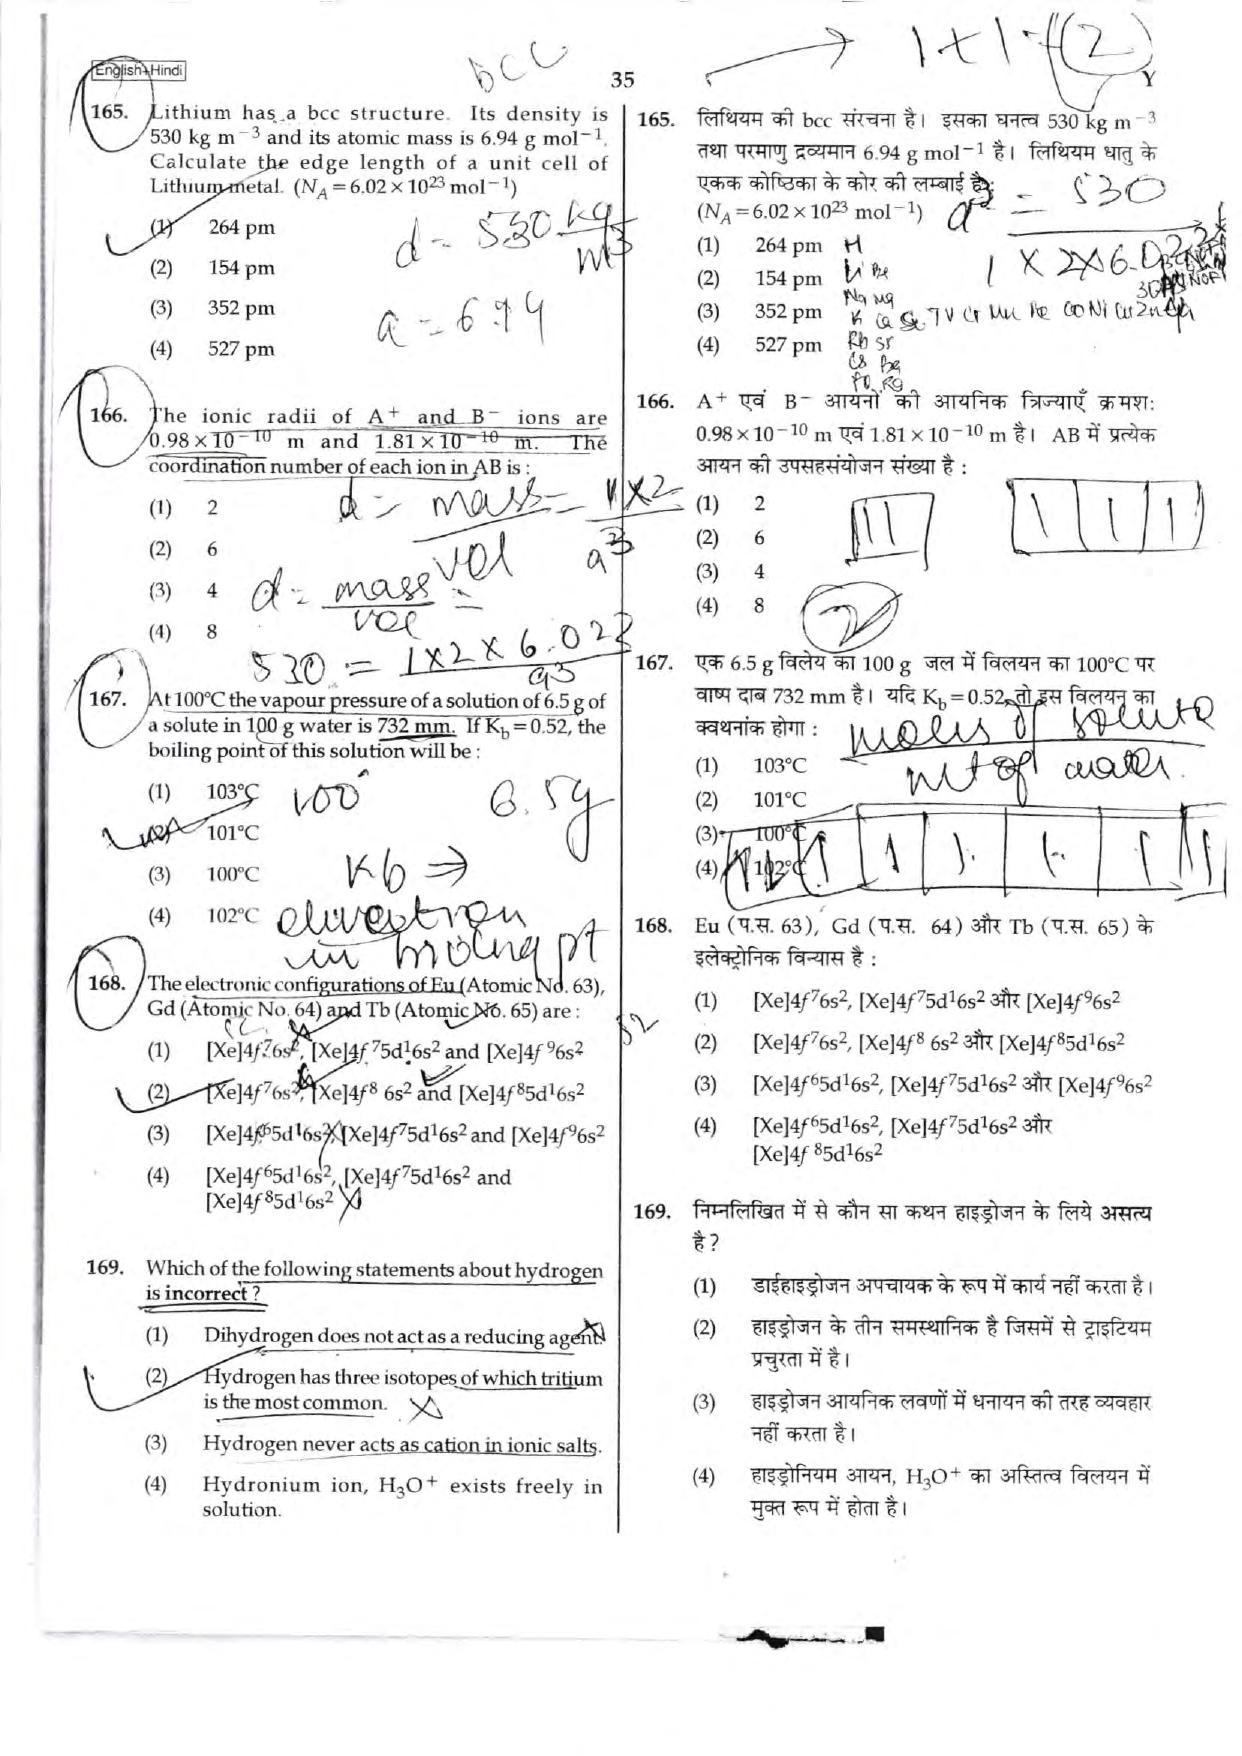 English+Hindi
bcc
35
1+1=2
Y
165. Lithium has a bcc structure. Its density is
530 kg m⁻³ and its atomic mass is 6.94 g mol⁻¹.
Calculate the edge length of a unit cell of
Lithium metal. (N_A = 6.02 × 10²³ mol⁻¹)
(1) 264 pm
(2) 154 pm
(3) 352 pm
(4) 527 pm
d = 530 kg/m³
a = 6.94
166. The ionic radii of A⁺ and B⁻ ions are
0.98 × 10⁻¹⁰ m and 1.81 × 10⁻¹⁰ m. The
coordination number of each ion in AB is :
(1) 2
(2) 6
(3) 4
(4) 8
d = mass/vol = 1×2/a³
d = mass/vol =
530 = 1×2×6.023/a³
167. At 100°C the vapour pressure of a solution of 6.5 g of
a solute in 100 g water is 732 mm. If K_b = 0.52, the
boiling point of this solution will be :
(1) 103°C
(2) 101°C
(3) 100°C
(4) 102°C
100°
6.5g
Kb ⇒
in boiling pt
168. The electronic configurations of Eu (Atomic No. 63),
Gd (Atomic No. 64) and Tb (Atomic No. 65) are :
(1) [Xe]4f⁷6s², [Xe]4f⁷5d¹6s² and [Xe]4f⁹6s²
(2) [Xe]4f⁷6s², [Xe]4f⁸ 6s² and [Xe]4f⁸5d¹6s²
(3) [Xe]4f⁶5d¹6s², [Xe]4f⁷5d¹6s² and [Xe]4f⁹6s²
(4) [Xe]4f⁶5d¹6s², [Xe]4f⁷5d¹6s² and
[Xe]4f⁸5d¹6s²
169. Which of the following statements about hydrogen
is incorrect ?
(1) Dihydrogen does not act as a reducing agent.
(2) Hydrogen has three isotopes of which tritium
is the most common.
(3) Hydrogen never acts as cation in ionic salts.
(4) Hydronium ion, H₃O⁺ exists freely in
solution.
165. लिथियम की bcc संरचना है। इसका घनत्व 530 kg m⁻³
तथा परमाणु द्रव्यमान 6.94 g mol⁻¹ है। लिथियम धातु के
एकक कोष्ठिका के कोर की लम्बाई है :
(N_A = 6.02 × 10²³ mol⁻¹)
(1) 264 pm
(2) 154 pm
(3) 352 pm
(4) 527 pm
H
Li Be
Na Mg
Rb Sr
Cs Ba
166. A⁺ एवं B⁻ आयनों की आयनिक त्रिज्याएँ क्रमशः
0.98 × 10⁻¹⁰ m एवं 1.81 × 10⁻¹⁰ m है। AB में प्रत्येक
आयन की उपसहसंयोजन संख्या है :
(1) 2
(2) 6
(3) 4
(4) 8
167. एक 6.5 g विलेय का 100 g जल में विलयन का 100°C पर
वाष्प दाब 732 mm है। यदि K_b = 0.52, तो इस विलयन का
क्वथनांक होगा :
(1) 103°C
(2) 101°C
(3) 100°C
(4) 102°C
moles of solute
wt of water.
168. Eu (प.स. 63), Gd (प.स. 64) और Tb (प.स. 65) के
इलेक्ट्रोनिक विन्यास है :
(1) [Xe]4f⁷6s², [Xe]4f⁷5d¹6s² और [Xe]4f⁹6s²
(2) [Xe]4f⁷6s², [Xe]4f⁸ 6s² और [Xe]4f⁸5d¹6s²
(3) [Xe]4f⁶5d¹6s², [Xe]4f⁷5d¹6s² और [Xe]4f⁹6s²
(4) [Xe]4f⁶5d¹6s², [Xe]4f⁷5d¹6s² और
[Xe]4f⁸5d¹6s²
169. निम्नलिखित में से कौन सा कथन हाइड्रोजन के लिये असत्य
है ?
(1) डाईहाइड्रोजन अपचायक के रूप में कार्य नहीं करता है।
(2) हाइड्रोजन के तीन समस्थानिक है जिसमें से ट्राइटियम
प्रचुरता में है।
(3) हाइड्रोजन आयनिक लवणों में धनायन की तरह व्यवहार
नहीं करता है।
(4) हाइड्रोनियम आयन, H₃O⁺ का अस्तित्व विलयन में
मुक्त रूप में होता है।